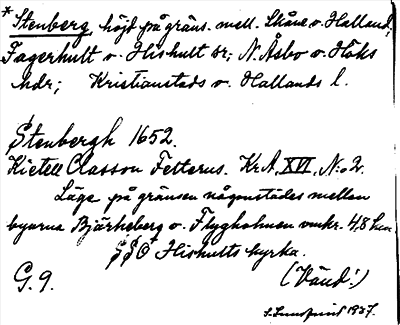 * Stenberg, höjd på gräns. mell. Skåne o. Halland;
Fagerhult o. Hishult sr; N. Åsbo o. Höks
hdr; Kristianstads o. Hallands l.
Stenbergh 1652.
Kietell Classon Felterus. Kr. A. XVI. N:o 2.
Läge på gränsen någonstädes mellan
byarna Bjärkeberg o. Flygholmen omkr. 4,8 km
SSO Hishults kyrka.
G. 9. (Vänd!)
S. Lundquist 1937.